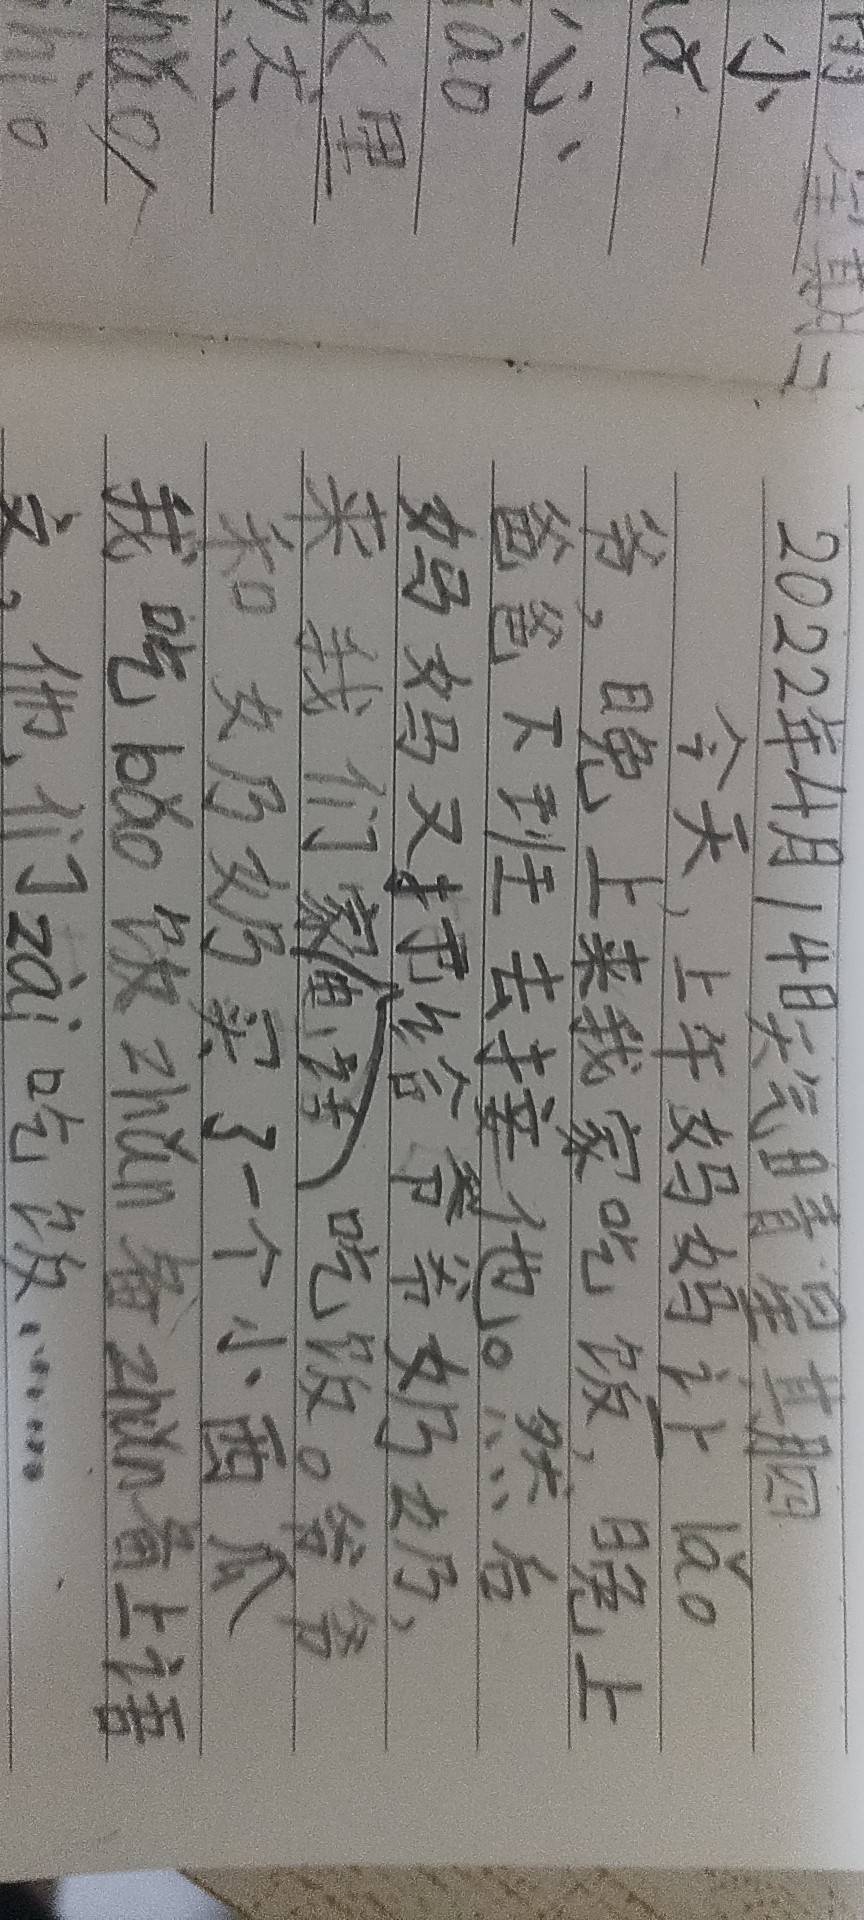 星期二
小
心、
ǎo
水里
hǎo
2022年4月14日天气晴星期四
今天,上午妈妈让lǎo
爷,晚上来我家吃饭,晚上
爸爸下班去接他。然后
妈妈又打电话给爷爷奶奶,
来我们家吃饭。爷爷
和奶奶买了一个小西瓜
我吃bǎo饭zhǔn备zhǔn备上语
文,他们zài吃饭……